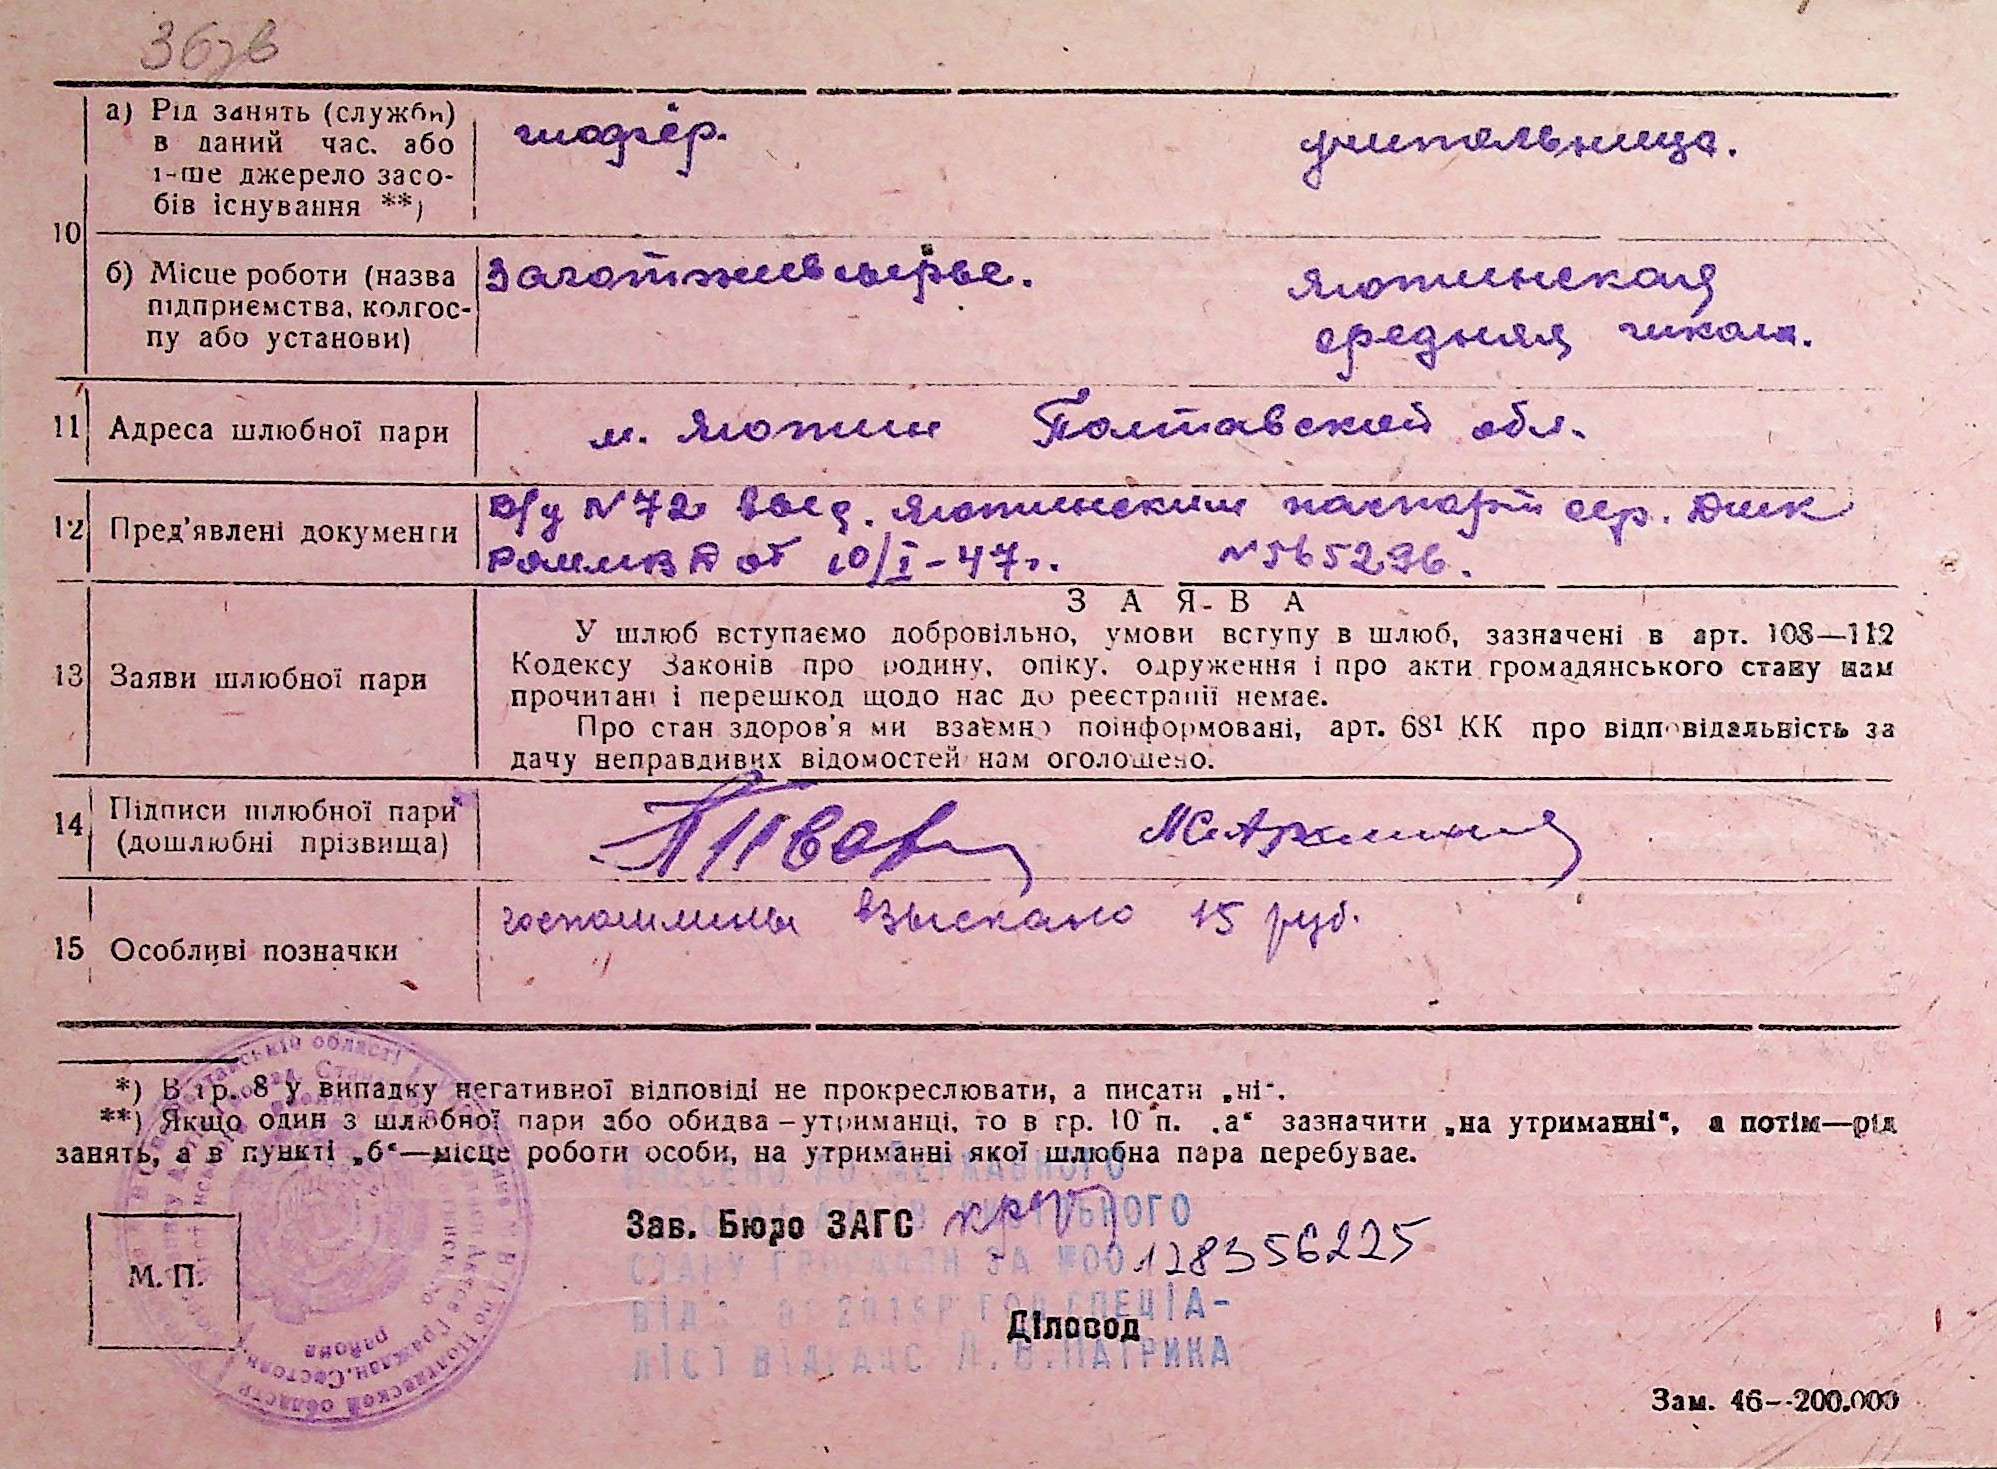 36зв
10
а) Рід занять (служби)
в даний час, або
інше джерело засо-
бів існування **)
шофёр.
учительница.
б) Місце роботи (назва
підприємства, колгос-
пу або установи)
Заготживсырье.
Яготинская
средняя школа.
11 Адреса шлюбної пари
м. Яготин Полтавской обл.
12 Пред'явлені документи
В/у №72 выд. Яготинским паспорт сер.
от 10/I-47г. №565296.
13 Заяви шлюбної пари
ЗАЯВА
У шлюб вступаємо добровільно, умови вступу в шлюб, зазначені в арт. 108—112
Кодексу Законів про родину, опіку, одруження і про акти громадянського стану нам
прочитані і перешкод щодо нас до реєстрації немає.
Про стан здоров'я ми взаємно поінформовані, арт. 68¹ КК про відповідальність за
дачу неправдивих відомостей нам оголошено.
14 Підписи шлюбної пари
(дошлюбні прізвища)
15 Особливі позначки
госпошлины взыскано 15 руб.
*) В гр. 8 у випадку негативної відповіді не прокреслювати, а писати „ні“.
**) Якщо один з шлюбної пари або обидва – утриманці, то в гр. 10 п. „а“ зазначити „на утриманні“, а потім—рід
занять, а в пункті „б“—місце роботи особи, на утриманні якої шлюбна пара перебуває.
ВНЕСЕНО ДО ДЕРЖАВНОГО
ЦИВІЛЬНОГО
Зав. Бюро ЗАГС
СТАНУ ГРОМАДЯН ЗА №00128356225
СПЕЦІА-
Діловод
ЛІСТ ВІДРАЦС Л.В.ПАТРИКА
М. П.
Зам. 46—200.000